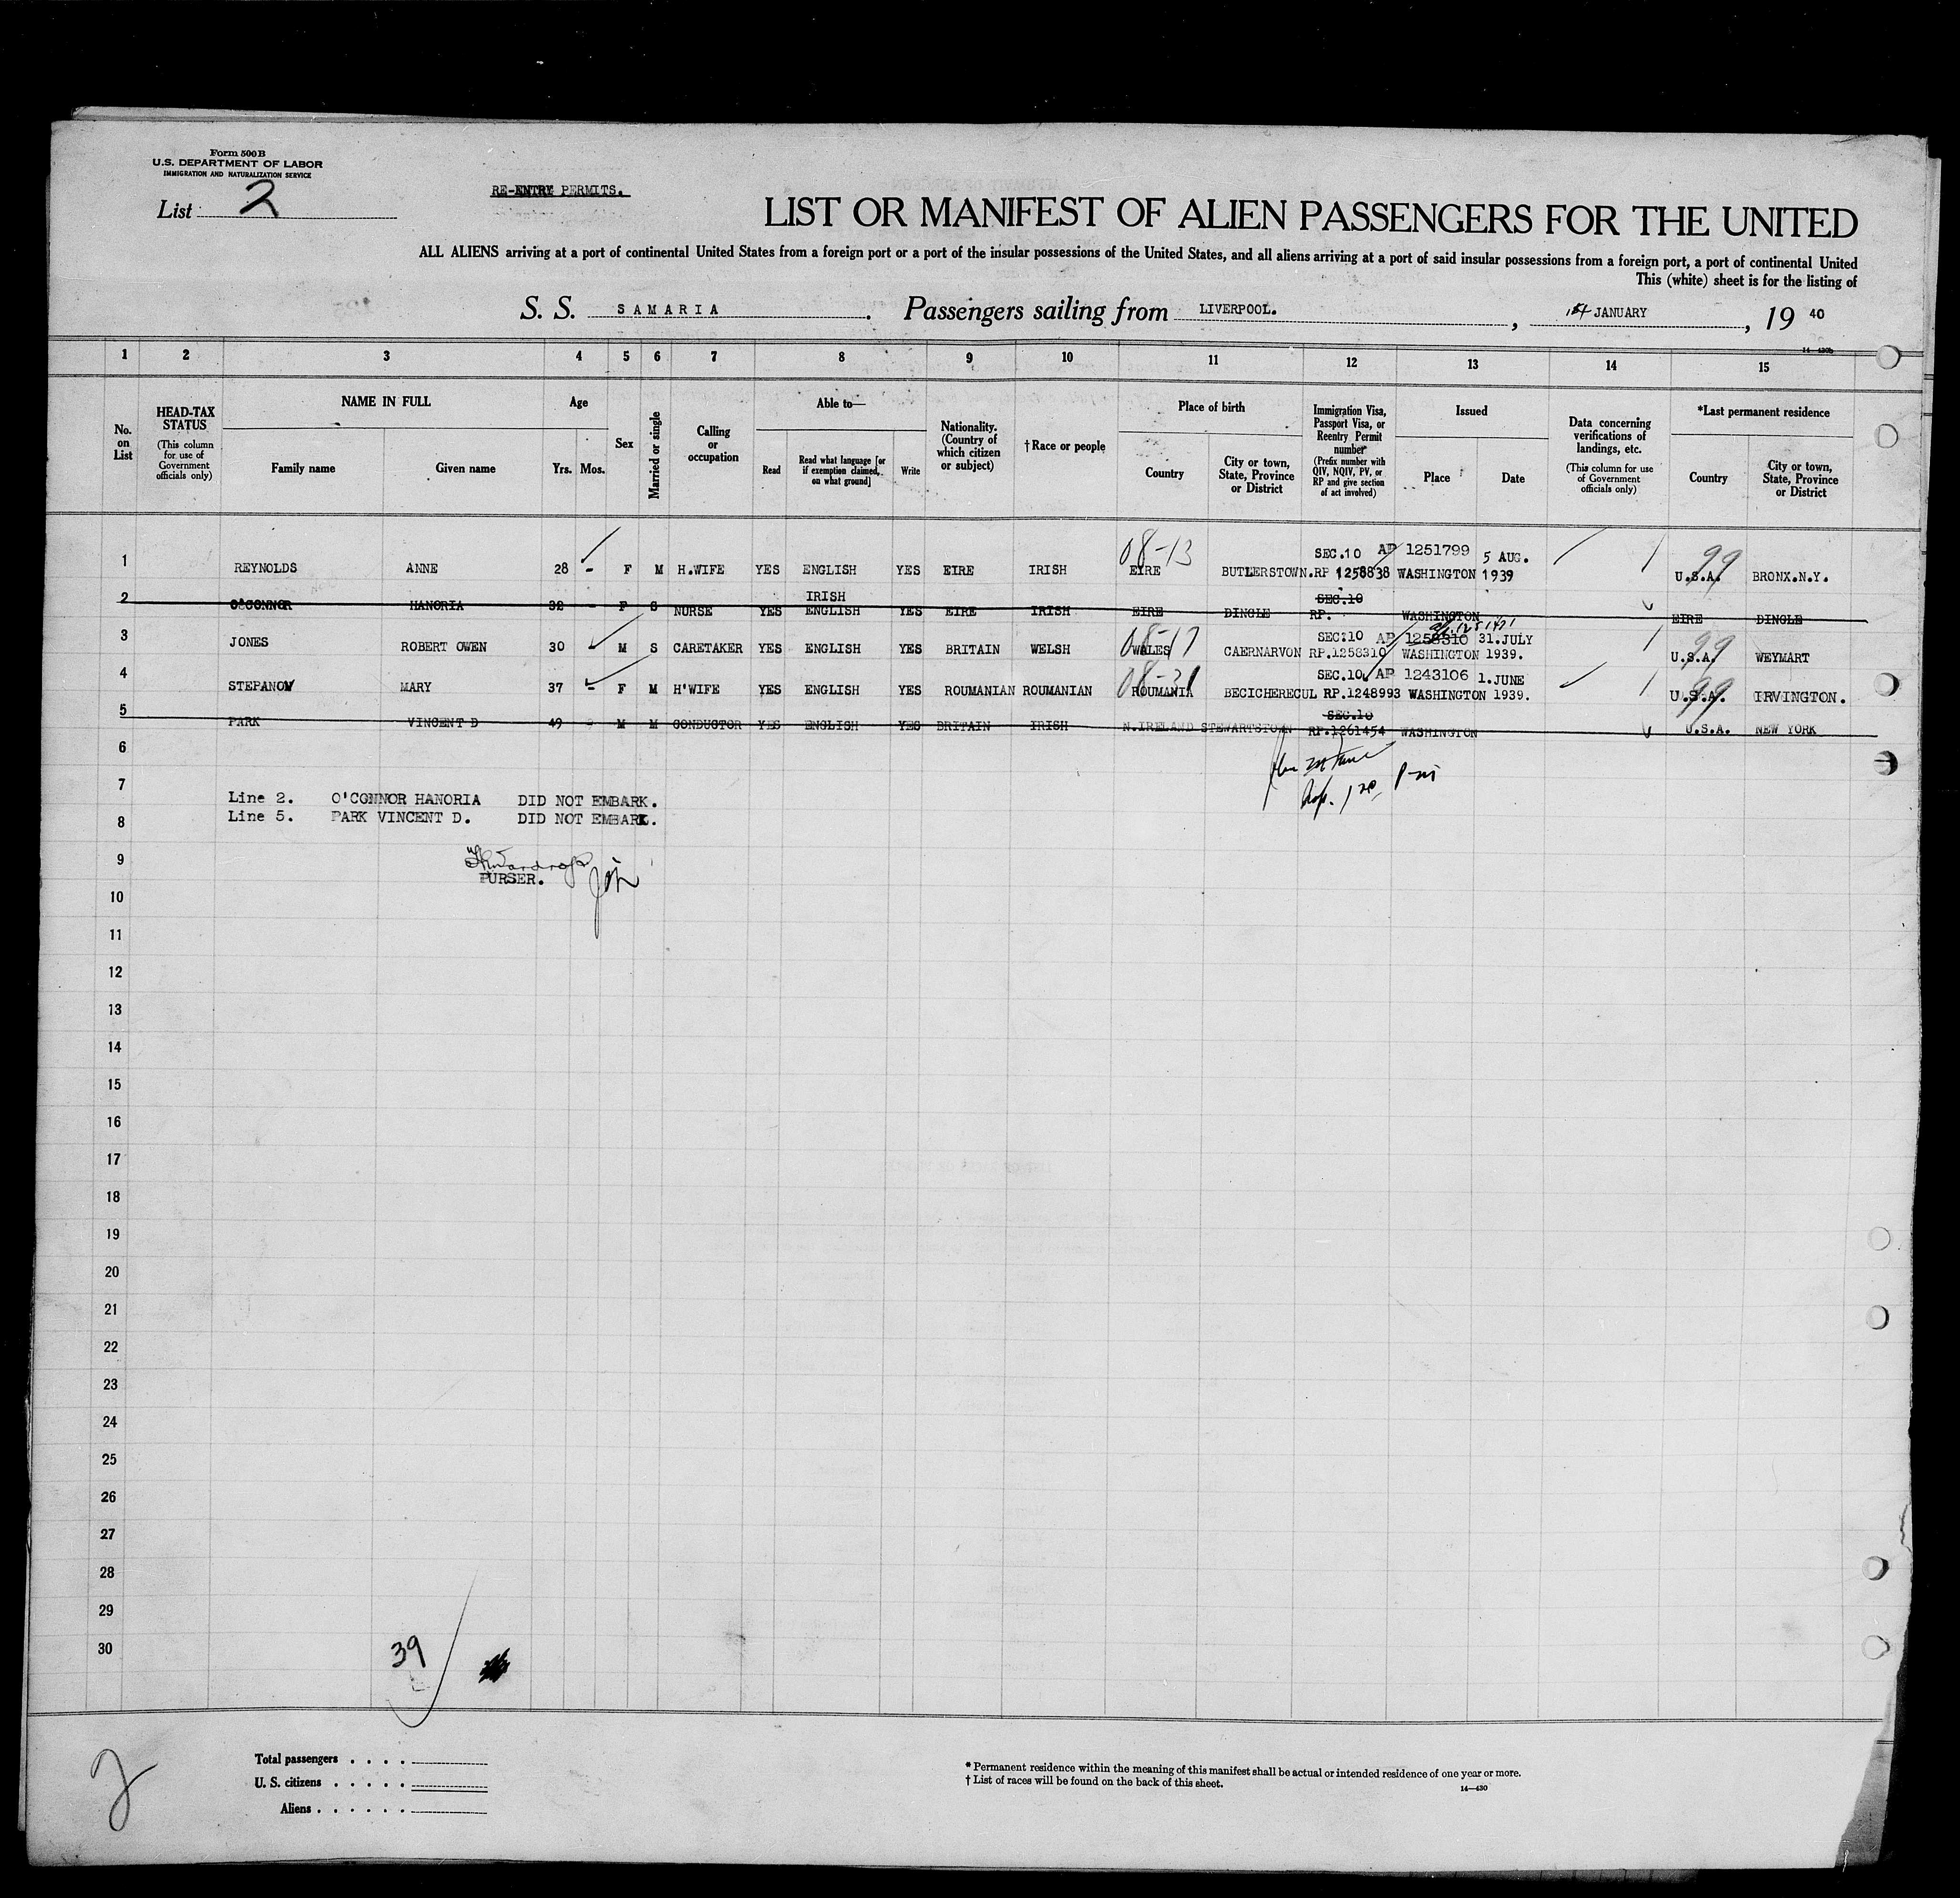 Form 500 B
U.S. DEPARTMENT OF LABOR
IMMIGRATION AND NATURALIZATION SERVICE
List 2
RE-ENTRY PERMITS.
LIST OR MANIFEST OF ALIEN PASSENGERS FOR THE UNITED
ALL ALIENS arriving at a port of continental United States from a foreign port or a port of the insular possessions of the United States, and all aliens arriving at a port of said insular possessions from a foreign port, a port of continental United
This (white) sheet is for the listing of
S. S. SAMARIA. Passengers sailing from LIVERPOOL. , JANUARY , 19 40
1 2 3 4 5 6 7 8 9 10 11 12 13 14 15
No. on List
HEAD-TAX STATUS (This column for use of Government officials only)
NAME IN FULL
Family name Given name
Age
Yrs. Mos.
Sex
Married or single
Calling or occupation
Able to—
Read Read what language [or if exemption claimed, on what ground] Write
Nationality. (Country of which citizen or subject)
†Race or people
Place of birth
Country City or town, State, Province or District
Immigration Visa, Passport Visa, or Reentry Permit number (Prefix number with QIV, NQIV, PV, or RP and give section of act involved)
Issued
Place Date
Data concerning verifications of landings, etc. (This column for use of Government officials only)
*Last permanent residence
Country City or town, State, Province or District
08-13 SEC.10 AP 1251799 5 AUG. 99
1 REYNOLDS ANNE 28 - F M H.WIFE YES ENGLISH YES EIRE IRISH EIRE BUTLERSTOWN. RP 1258838 WASHINGTON 1939 U.S.A. BRONX.N.Y.
IRISH SEC.10
2 O'CONNOR HANORIA 32 - F S NURSE YES ENGLISH YES EIRE IRISH EIRE DINGLE RP. WASHINGTON EIRE DINGLE
08-17 SEC.10 AP 1258310 31.JULY 99
3 JONES ROBERT OWEN 30 - M S CARETAKER YES ENGLISH YES BRITAIN WELSH WALES CAERNARVON RP.1258310 WASHINGTON 1939. U.S.A. WEYMART
08-31 SEC.10. AP 1243106 1.JUNE 99
4 STEPANOV MARY 37 - F M H'WIFE YES ENGLISH YES ROUMANIAN ROUMANIAN ROUMANIA BECICHERECUL RP.1248993 WASHINGTON 1939. U.S.A. IRVINGTON.
SEC.10
5 PARK VINCENT D 49 - M M CONDUCTOR YES ENGLISH YES BRITAIN IRISH N.IRELAND STEWARTSTOWN RP.1261454 WASHINGTON U.S.A. NEW YORK
6
7
Line 2. O'CONNOR HANORIA DID NOT EMBARK.
8 Line 5. PARK VINCENT D. DID NOT EMBARK.
9
PURSER.
10
11
12
13
14
15
16
17
18
19
20
21
22
23
24
25
26
27
28
29
30
39
2
Total passengers . . . .
U. S. citizens . . . . .
Aliens . . . . . .
* Permanent residence within the meaning of this manifest shall be actual or intended residence of one year or more.
† List of races will be found on the back of this sheet.
14—430